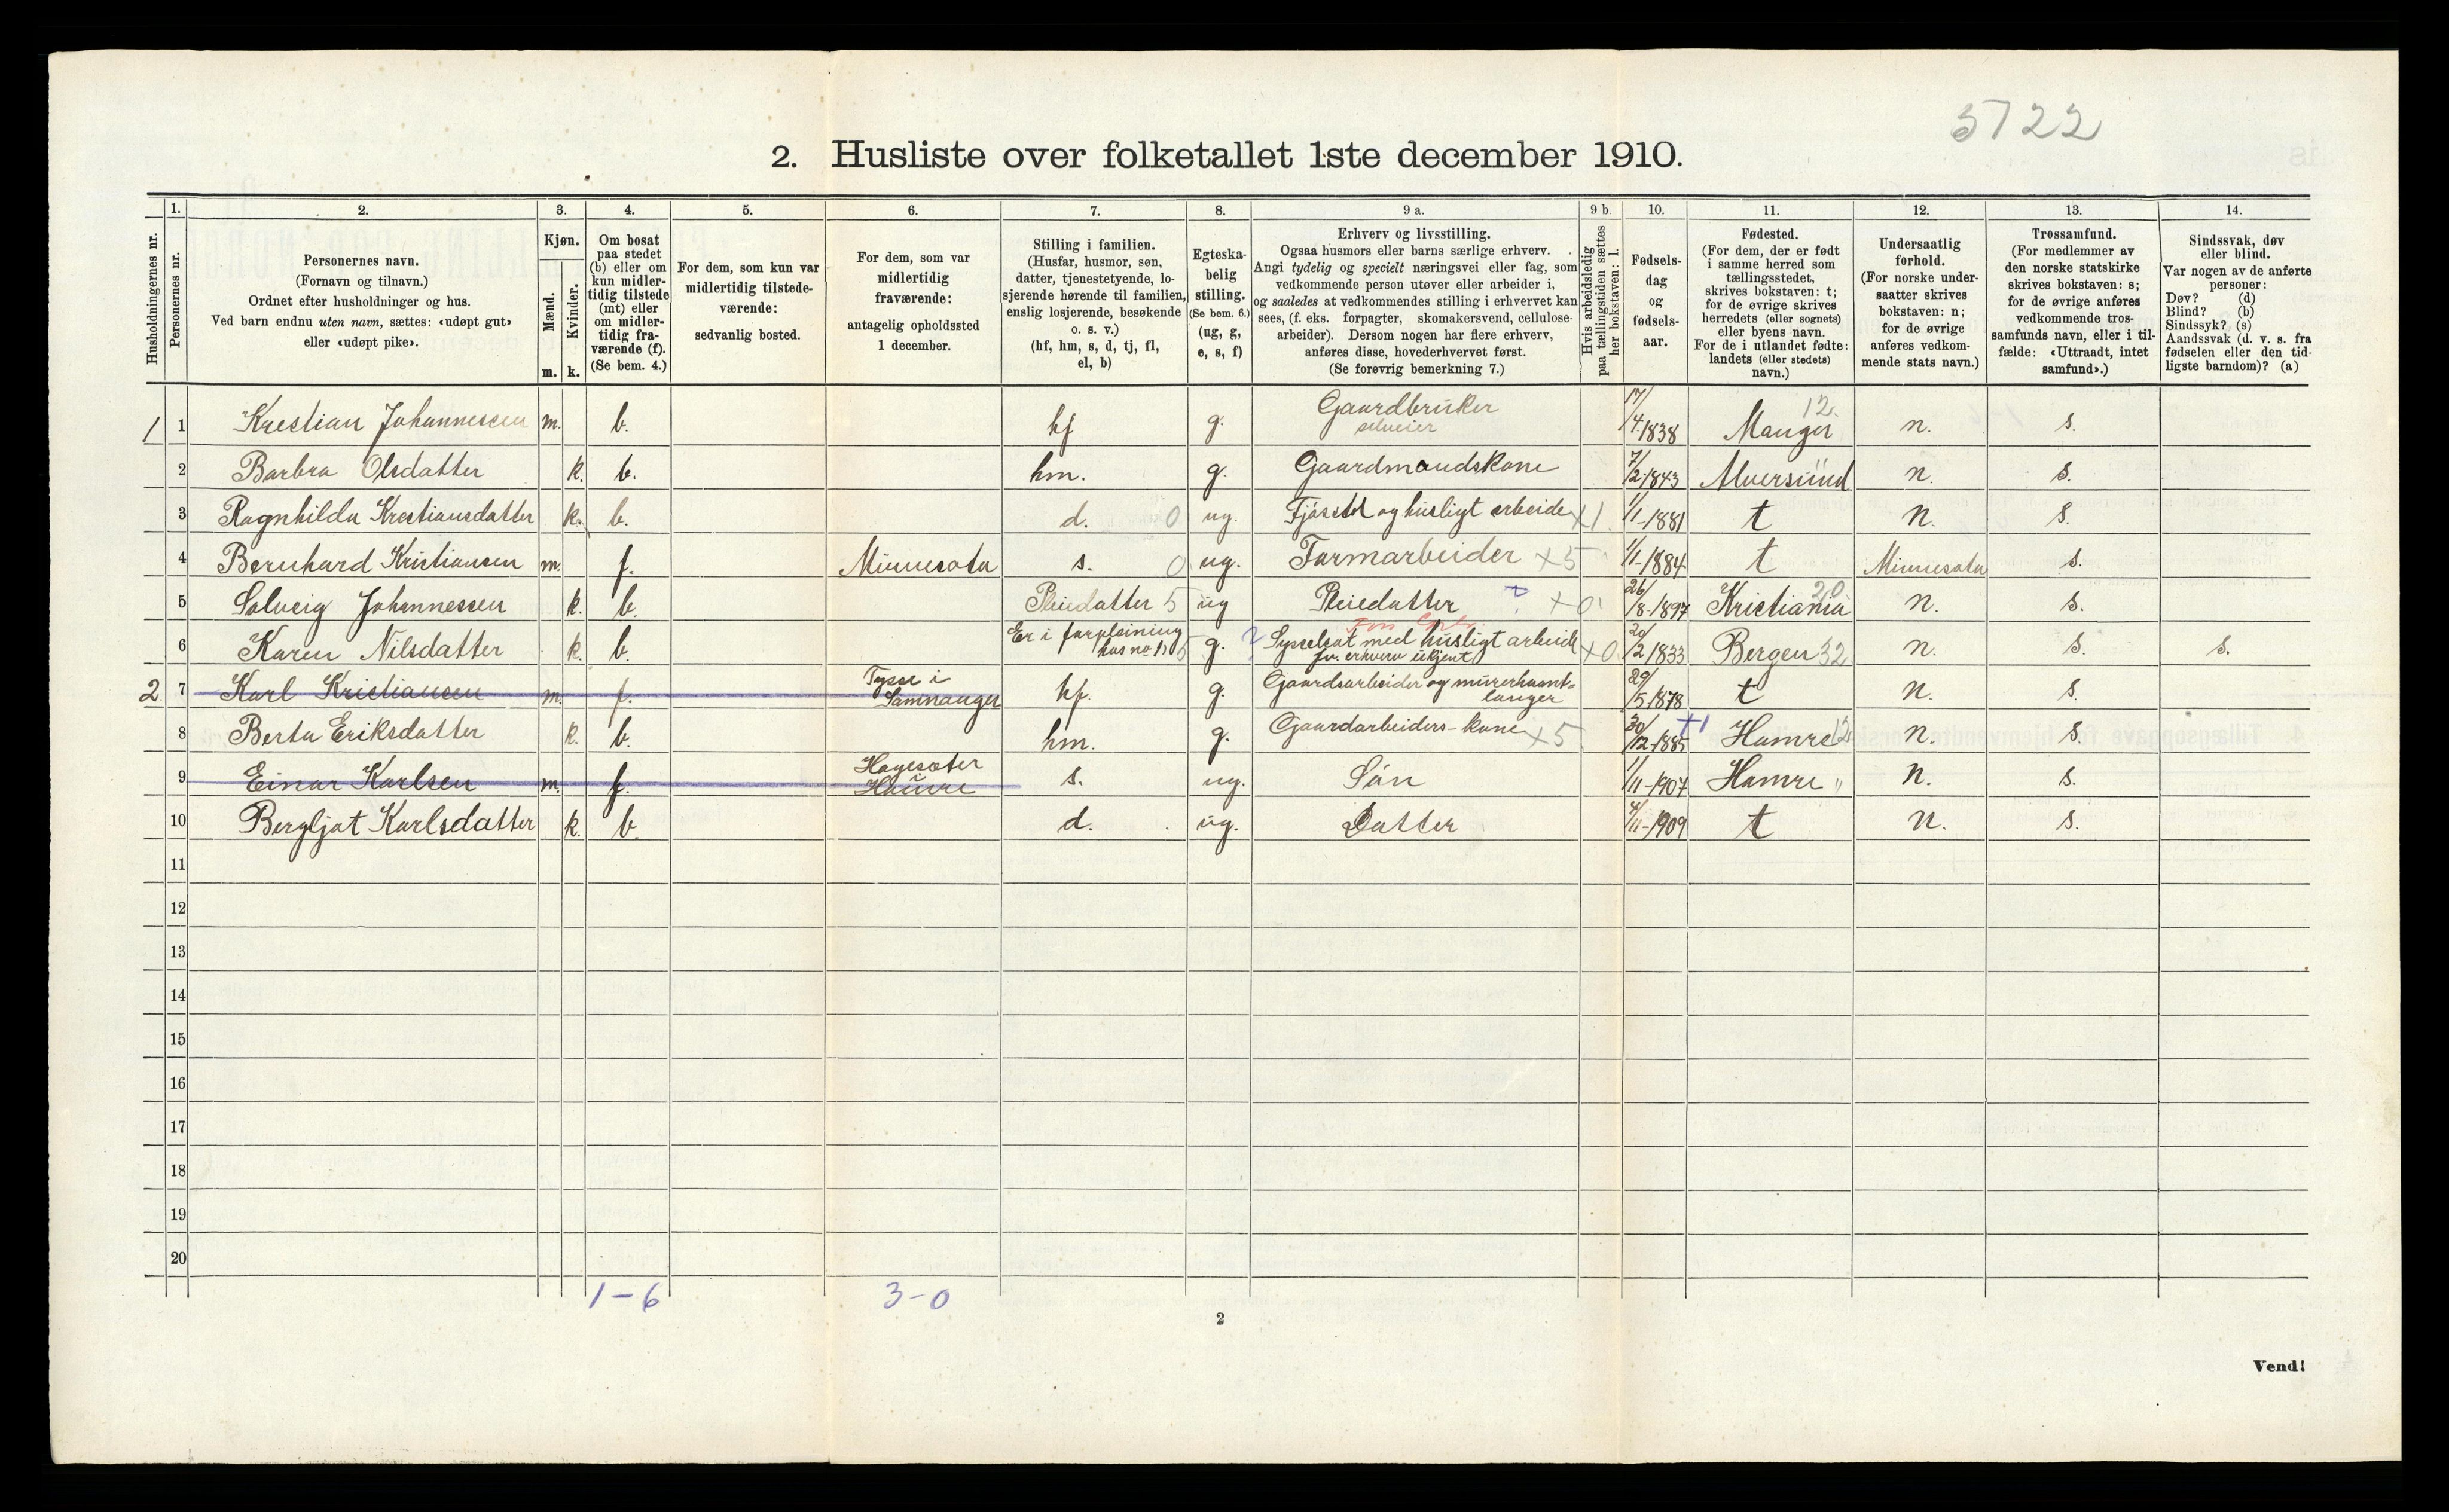 5722
2. Husliste over folketallet 1ste december 1910.
Husholdningernes nr.
1.
Personernes nr.
2.
Personernes navn.
(Fornavn og tilnavn.)
Ordnet efter husholdninger og hus.
Ved barn endnu uten navn, sættes: «udøpt gut»
eller «udøpt pike».
3.
Kjøn.
Mænd.
Kvinder.
m. k.
4.
Om bosat
paa stedet
(b) eller om
kun midler-
tidig tilstede
(mt) eller
om midler-
tidig fra-
værende (f).
(Se bem. 4.)
5.
For dem, som kun var
midlertidig tilstede-
værende:
sedvanlig bosted.
6.
For dem, som var
midlertidig
fraværende:
antagelig opholdssted
1 december.
7.
Stilling i familien.
(Husfar, husmor, søn,
datter, tjenestetyende, lo-
sjerende hørende til familien,
enslig losjerende, besøkende
o. s. v.)
(hf, hm, s, d, tj, fl,
el, b)
8.
Egteska-
belig
stilling.
(Se bem. 6.)
(ug, g,
e, s, f)
9 a.
Erhverv og livsstilling.
Ogsaa husmors eller barns særlige erhverv.
Angi tydelig og specielt næringsvei eller fag, som
vedkommende person utøver eller arbeider i,
og saaledes at vedkommendes stilling i erhvervet kan
sees, (f. eks. forpagter, skomakersvend, cellulose-
arbeider). Dersom nogen har flere erhverv,
anføres disse, hovederhvervet først.
(Se forøvrig bemerkning 7.)
9 b.
Hvis arbeidsledig
paa tællingstiden sættes
her bokstaven: l.
10.
Fødsels-
dag
og
fødsels-
aar.
11.
Fødested.
(For dem, der er født
i samme herred som
tællingsstedet,
skrives bokstaven: t;
for de øvrige skrives
herredets (eller sognets)
eller byens navn.
For de i utlandet fødte:
landets (eller stedets)
navn.)
12.
Undersaatlig
forhold.
(For norske under-
saatter skrives
bokstaven: n;
for de øvrige
anføres vedkom-
mende stats navn.)
13.
Trossamfund.
(For medlemmer av
den norske statskirke
skrives bokstaven: s;
for de øvrige anføres
vedkommende tros-
samfunds navn, eller i til-
fælde: «Uttraadt, intet
samfund».)
14.
Sindssvak, døv
eller blind.
Var nogen av de anførte
personer:
Døv? (d)
Blind? (b)
Sindssyk? (s)
Aandssvak (d. v. s. fra
fødselen eller den tid-
ligste barndom)? (a)
1 1 Krestian Johannessen m. b. hf g. Gaardbruker selveier 17/4 1838 Manger 12. n. s.
2 Barbra Olsdatter k. b. hm. g. Gaardmandskone 7/2 1843 Alversund n. s.
3 Ragnhilda Krestiansdatter k. b. d. 0 ug. Fjösstel og husligt arbeide x1. 1/1-1881 t n. s.
4 Bernhard Kristiansen m. f. Minnesota s. 0 ug. Farmarbeider x5 1/1-1884 t Minnesota s.
5 Solveig Johannessen k. b. Pleiedatter 5 ug Pleiedatter ? x0 26/8-1897 Kristiania 20 n. s.
6 Karen Nilsdatter k. b. Er i forpleining hos no 1. 5 g. ? Sysselsat med husligt arbeide fv. erhverv ukjent x0 20/2 1833 Bergen 32 n. s. s.
2. 7 Karl Kristiansen m. f. Tysse i Samnanger hf. g. Gaardsarbeider og murerhaant- langer 29/5 1878 t n. s.
8 Berta Eriksdatter k. b. hm. g. Gaardarbeiders-kone x5 30/12-1885 +1 Hamre 12. n. s.
9 Einar Karlsen m. f. Hagesæter i Hamre s. ug. Sön 1/11-1907 Hamre " n. s.
10 Bergljot Karlsdatter k. b. d. ug. Datter 4/11-1909 t n. s.
11
12
13
14
15
16
17
18
19
20
1-6 3-0
2
Vend!